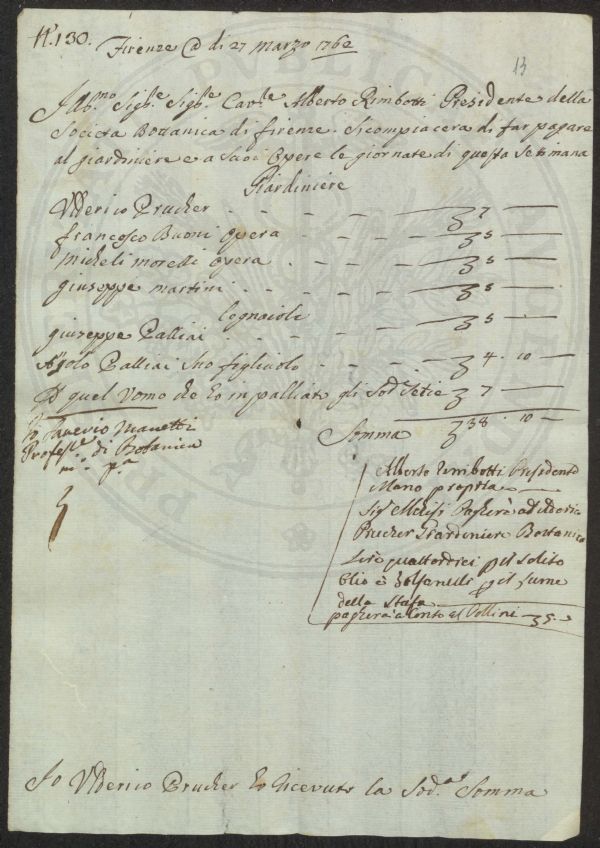 N.º 130. Firenze @ di 27 Marzo 1762
13
Sigr.e Sigr.e Cav.re Alberto Rimbotti Presidente della
Societa Botanica di firenze. Si compiacera di far pagare
al giardiniere e a Suoi Opere le giornate di questa Settimana
Giardiniere
Ulderico Prucher . - - - - 7 —
francesco Buoni opera - - - - 5 —
Micheli Moretti opera . - - - 5 —
giuseppe martini . . - - - - 5 —
legnaioli
giuseppe Palliai . - - - - 5 —
Palliai Suo figliuolo - - - - 4 . 10 —
A quel Uomo che Eo in palliato gli Sod. 7 —
Somma 38 . 10 —
Io Saverio Manetti
Profess.e di Botanica
m.o p.a
Alberto Rimbotti Presidente
Mano propria
Sig.r Pagherà ad Ulderico
Prucher Giardiniere Bottanico
Lire quattordici p il solito
Elio e p il fume
della Stufa
pagherà a Conto al Pollini — 35. —
Io Ulderico Prucher Eo Ricevuto la Sod.a Somma
PUBLIC